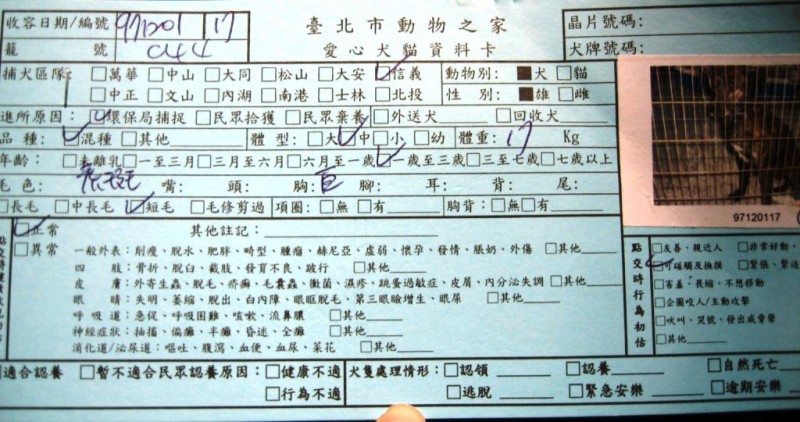 收容日期/編號 971201 17 臺北市動物之家 晶片號碼:
籠 號 C44 愛心犬貓資料卡 犬牌號碼:
捕犬區隊: □萬華□中山□大同□松山□大安☑信義 動物別: ■犬 □貓
□中正□文山□內湖□南港□士林□北投 性 別: ■雄 □雌
進所原因: ☑環保局捕捉□民眾拾獲□民眾棄養□外送犬 □回收犬
品 種: ☑混種□其他 體 型: □大☑中□小□幼 體重: 17 Kg
年齡: □未離乳□一至三月□三月至六月□六月至一歲☑一歲至三歲□三至七歲□七歲以上
毛 色: 嘴: 頭: 胸: 白 腳: 耳: 背: 尾:
□長毛 □中長毛 ☑短毛 □毛修剪過 項圈: □無 □有 胸背: □無□有
97120117
☑正常 其他註記:
□異常 一般外表: 削瘦、脫水、肥胖、畸型、腫瘤、赫尼亞、虛弱、懷孕、發情、脹奶、外傷 □其他
四 肢: 骨折、脫臼、截肢、發育不良、跛行 □其他
皮 膚: 外寄生蟲、脫毛、疥癬、毛囊蟲、黴菌、濕疹、跳蚤過敏症、皮屑、內分泌失調 □其他
眼 睛: 失明、萎縮、脫出、白內障、眼眶脫毛、第三眼瞼增生、眼屎 □其他
呼 吸 道: 急促、呼吸困難、咳嗽、流鼻膿 □其他
神經症狀: 抽搐、偏癱、半癱、昏迷、全癱 □其他
消化道/泌尿道: 嘔吐、腹瀉、血便、血尿、菜花 □其他
點交時行為初估
□友善、親近人 □非常好動、
☑可碰觸及撫摸 □緊張、緊迫
□害羞、畏縮、不想移動
□企圖咬人/主動攻擊
□吠叫、哭號、發出威脅聲
□其他
適合認養 □暫不適合民眾認養原因: □健康不適 犬隻處理情形: □認領 □認養 □自然死亡
□行為不適 □逃脫 □緊急安樂 □逾期安樂